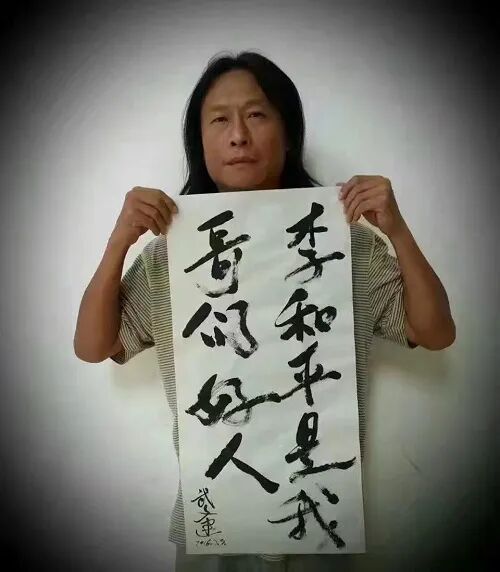 李和平是我
哥们好人
武文建